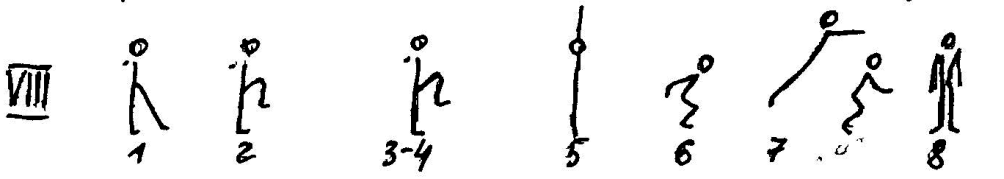 VIII
1 2 3-4 5 6 7 8